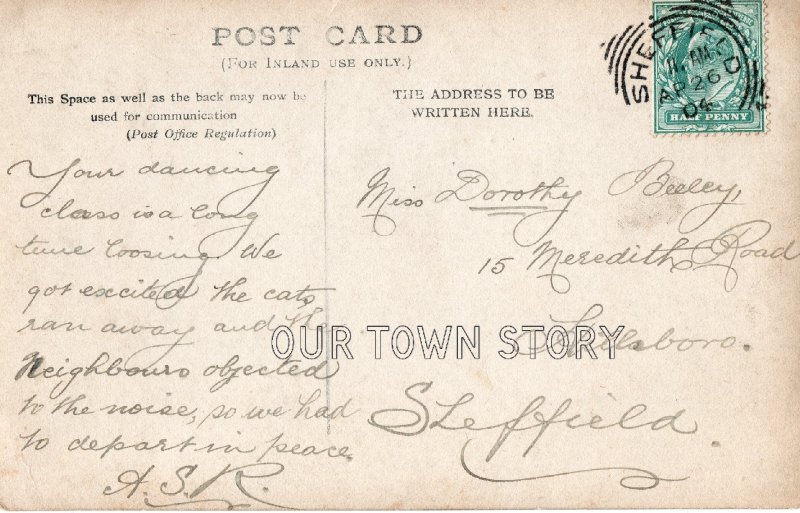 POST CARD
(FOR INLAND USE ONLY.)
This Space as well as the back may now be
used for communication
(Post Office Regulation)
THE ADDRESS TO BE
WRITTEN HERE.
SHEFFIELD
AP 26
06
HALF PENNY
Your dancing
class is a long
time loosing. We
got excited the cats
ran away and the
Neighbours objected
to the noise, so we had
to depart in peace.
A.S.R.
Miss Dorothy Beeley,
15 Meredith Road
Hillsboro.
Sheffield.
OUR TOWN STORY